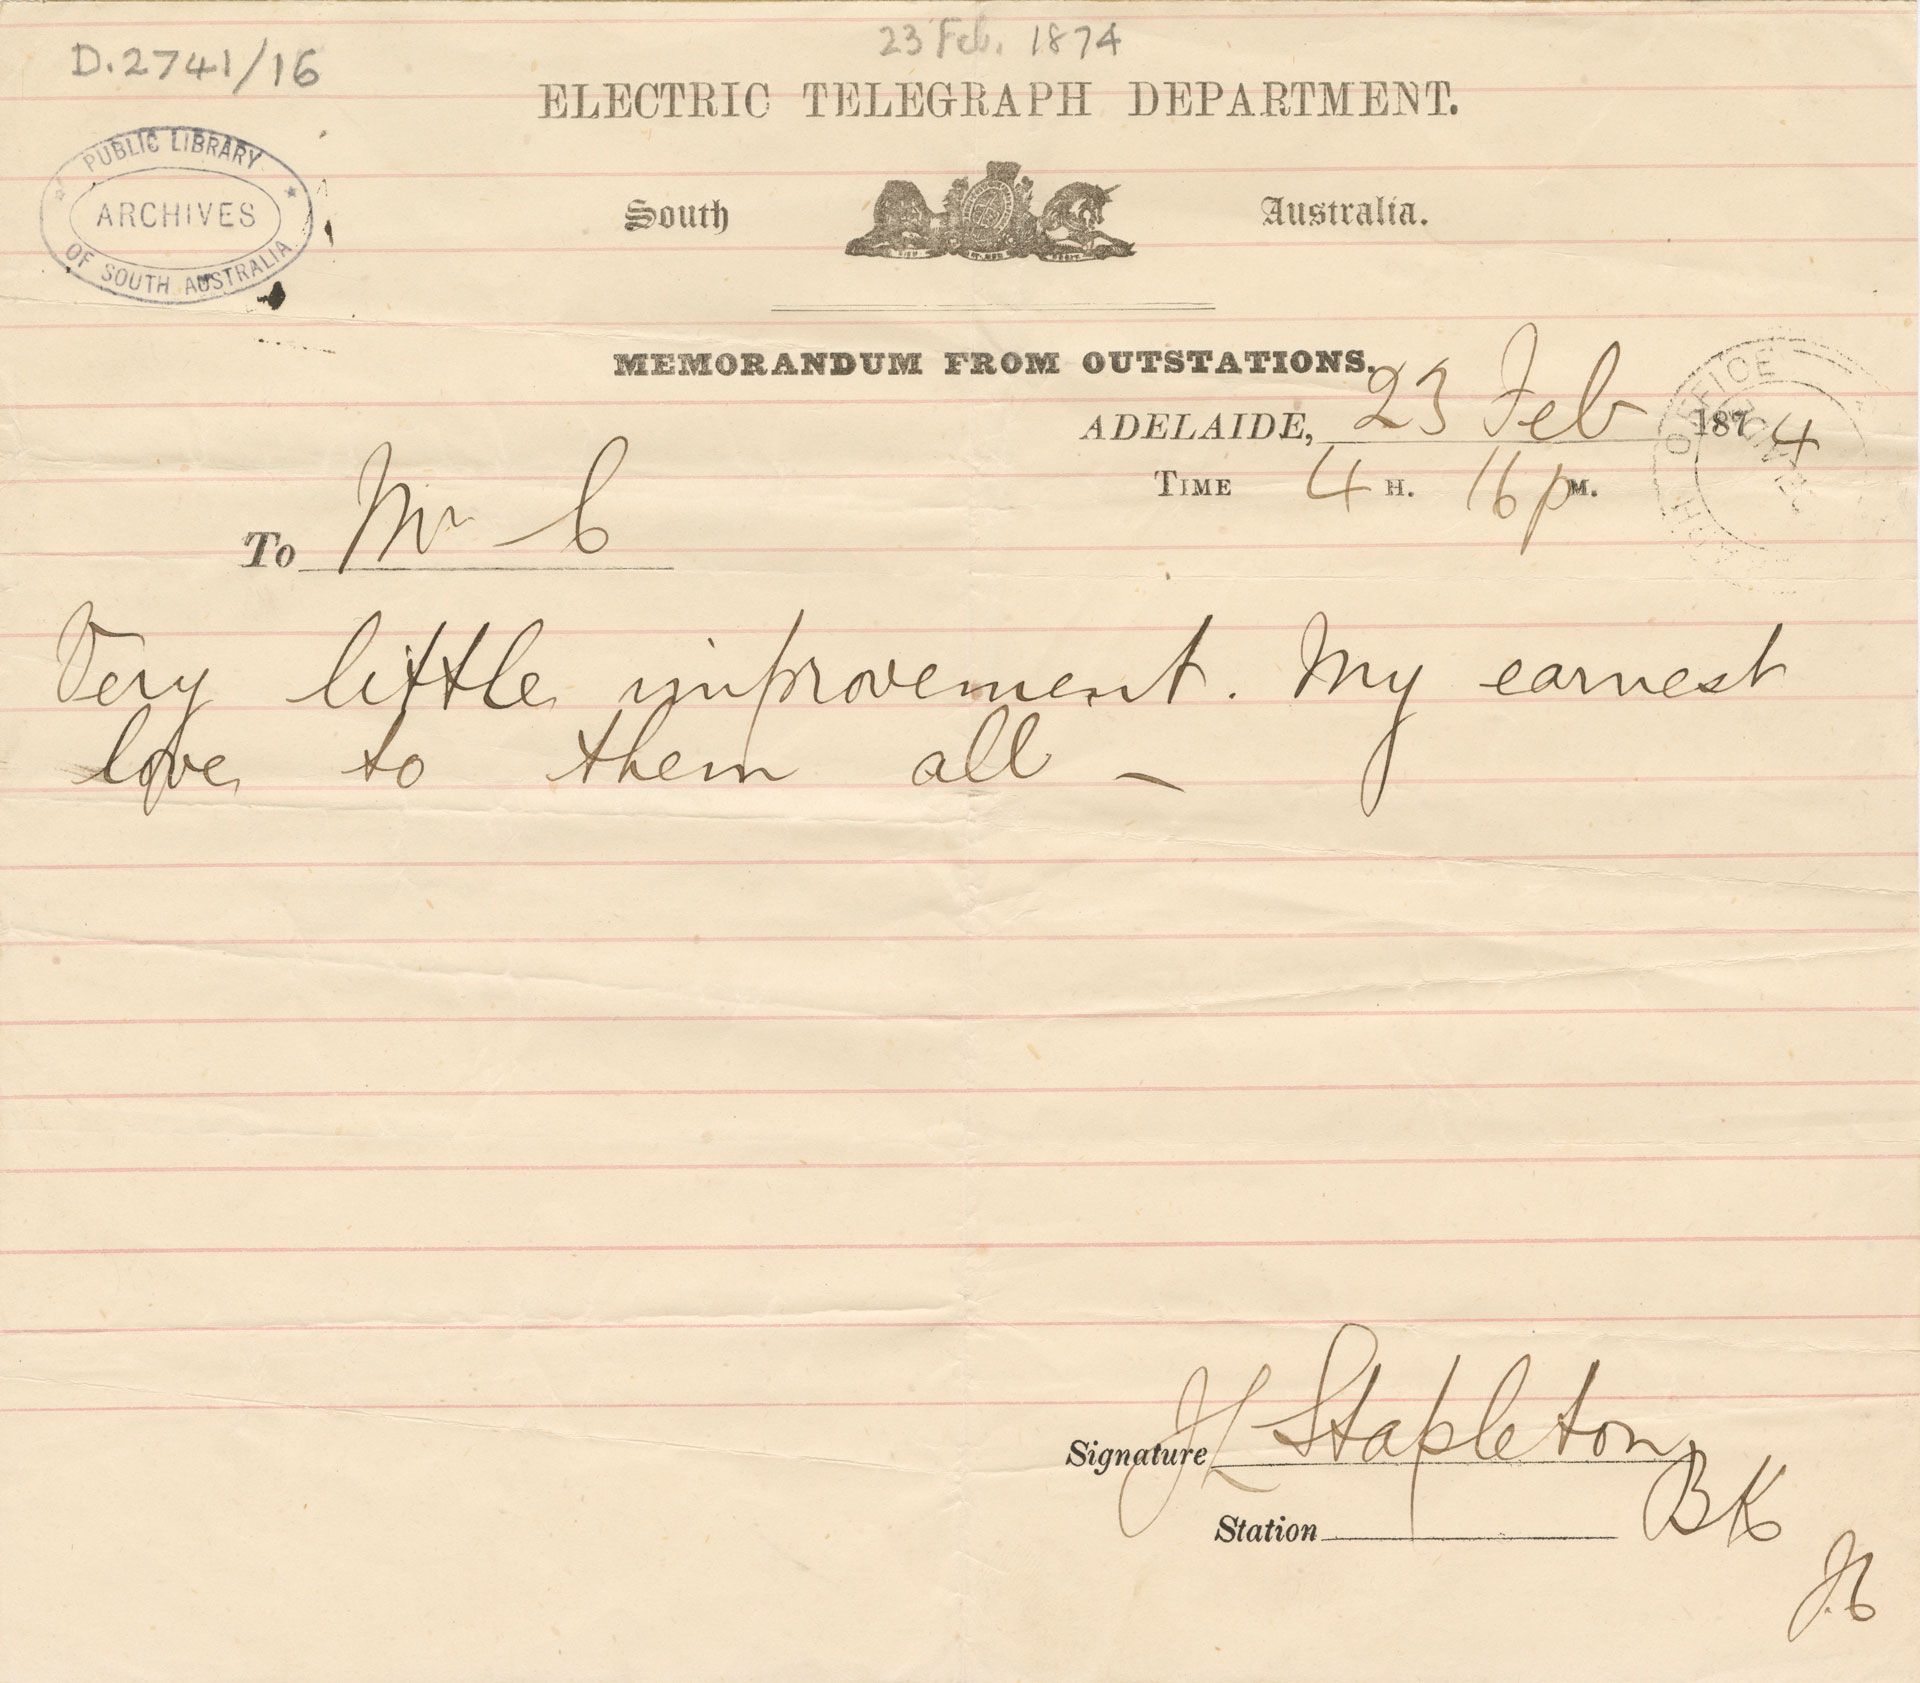 D.2741/16
23 Feb. 1874
ELECTRIC TELEGRAPH DEPARTMENT.
PUBLIC LIBRARY
ARCHIVES
OF SOUTH AUSTRALIA
South Australia.
MEMORANDUM FROM OUTSTATIONS.
ADELAIDE, 23 Feb 1874
TIME 4 H. 16 p M.
OFFICE
To Mr C
Very little improvement. My earnest
love to them all —
Signature JL Stapleton
Station BK